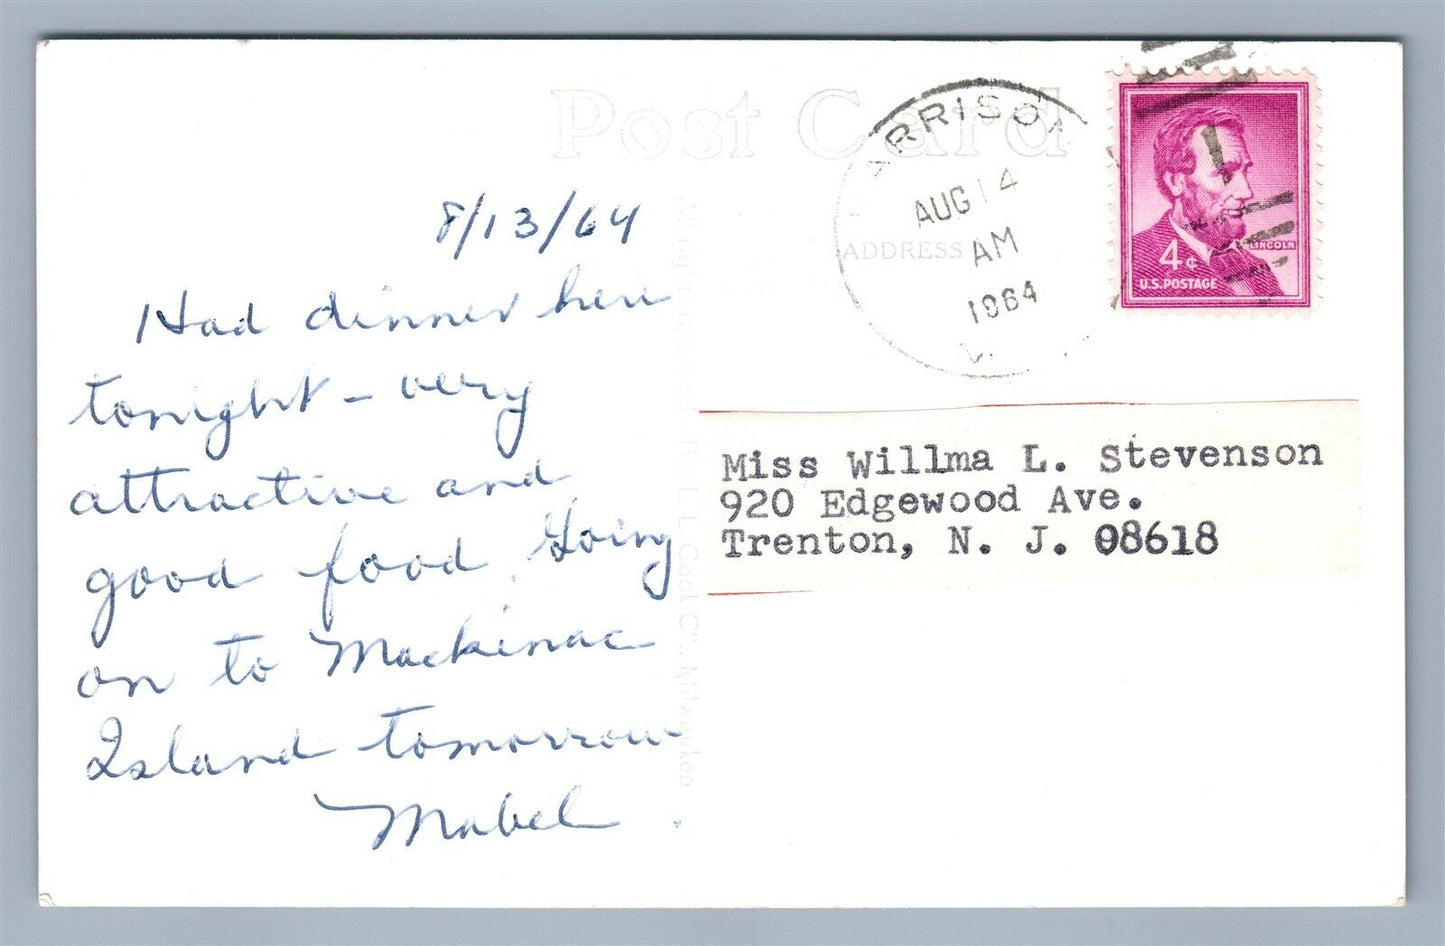 Post Card
ARRISON
AUG 14
AM
1964
ADDRESS
LINCOLN
4¢
U.S. POSTAGE
8/13/64
Had dinner here
tonight - very
attractive and
good food. Going
on to Mackinac
Island tomorrow
Mabel.
The L. L. Cook Co., Milwaukee
Miss Willma L. Stevenson
920 Edgewood Ave.
Trenton, N. J. 08618